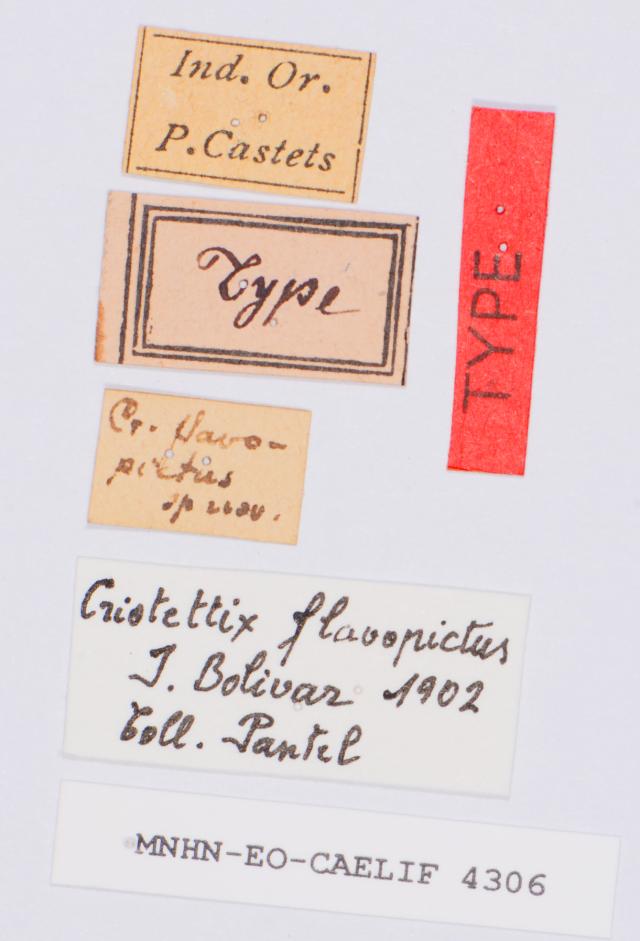 Ind. Or.
P. Castets
Type
TYPE
Cr. flavo-
pictus
sp nov.
Criotettix flavopictus
I. Bolivar 1902
Coll. Pantel
MNHN-EO-CAELIF 4306